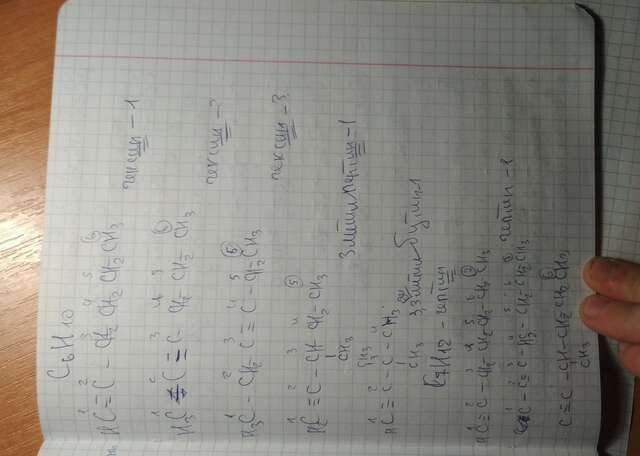 C6H10
HC≡C-CH2-CH2-CH2-CH3 гексин-1
H3C-C≡C-CH2-CH2-CH3 гексин-2
H3C-CH2-C≡C-CH2-CH3 гексин-3
HC≡C-CH-CH2-CH3 3метилпентин-1
CH3
CH3
HC≡C-C-CH3 3,3 диметилбутин1
CH3
C7H12-гептин
HC≡C-CH2-CH2-CH2-CH2-CH3
гептин
C≡C-CH-CH2-CH2-CH3
CH3